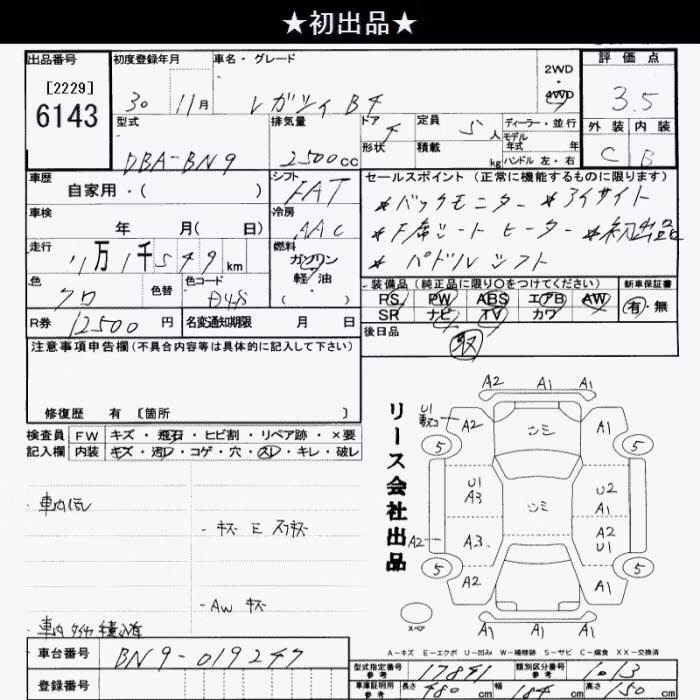 ★初出品★
出品番号
[2229]
6143
初度登録年月
30 11月
車名・グレード
レガシィ B4
2WD
4WD
評価点
3.5
外装 内装
C B
型式
DBA-BN9
排気量
2500cc
ドア
4
形状
定員
5人
積載
kg
ディーラー・並行
モデル
年式 年
ハンドル 左・右
車歴
自家用・( )
シフト
FAT
セールスポイント (正常に機能するものに限ります)
*バックモニター *アイサイト
*F席シートヒーター *初出品
*パドルシフト
車検
年 月( 日)
冷房
AAC
走行
11万1千549km
燃料
ガソリン
軽・油
( ・ )
色
クロ
色替
色コード
D4S
装備品 (純正品に限り○をつけてください)
PS PW ABS エアB AW
SR ナビ TV カワ
新車保証書
有・無
R券
12500円
名変通知期限 月 日
後日品
取
注意事項申告欄(不具合内容等は具体的に記入して下さい)
修復歴 有 〔箇所 〕
検査員
記入欄
FW キズ・飛石・ヒビ割・リペア跡・×要
内装 キズ・汚レ・コゲ・穴・スレ・キレ・破レ
・キズ E スリキズ
・AW キズ
リース会社出品
A2 A1 A1
U1
A2
A1
5 5
U1
A3
U2
A1
A2 A3
A2
U1
5 5
A2 A1
A1 A1 A1
スペア
A-キズ E-エクボ U-凹み W-補修跡 S-サビ C-腐食 XX-交換済
車台番号
BN9-019247
登録番号
型式指定番号
参考
17841
類別区分番号
参考
1013
車庫証明用
参考
長さ 480cm 幅 184cm 高さ 150cm